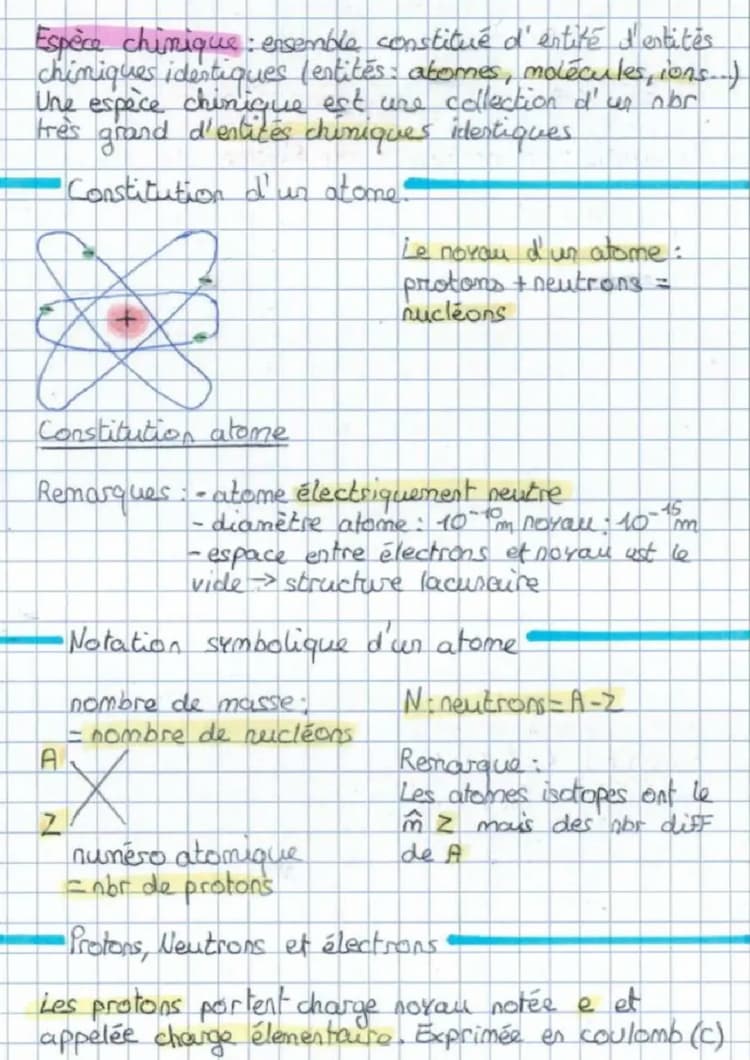 Espèce chimique : ensemble constitué d'entité d'entités
chimiques identiques (entités : atomes, molécules, ions...)
Une espèce chimique est une collection d'un nbr
très grand d'entités chimiques identiques
Constitution d'un atome.
Le noyau d'un atome :
protons + neutrons =
nucléons
+
Constitution atome
Remarques : - atome électriquement neutre
- diamètre atome : 10⁻¹⁰m noyau : 10⁻¹⁵m
- espace entre électrons et noyau est le
vide → structure lacunaire
Notation symbolique d'un atome
nombre de masse :
= nombre de nucléons
A
X
Z
numéro atomique
= nbr de protons
N : neutrons = A - Z
Remarque :
Les atomes isotopes ont le
m̂ Z mais des nbr diff
de A
Protons, Neutrons et électrons
Les protons portent charge noyau notée e et
appelée charge élementaire. Exprimée en coulomb (C)